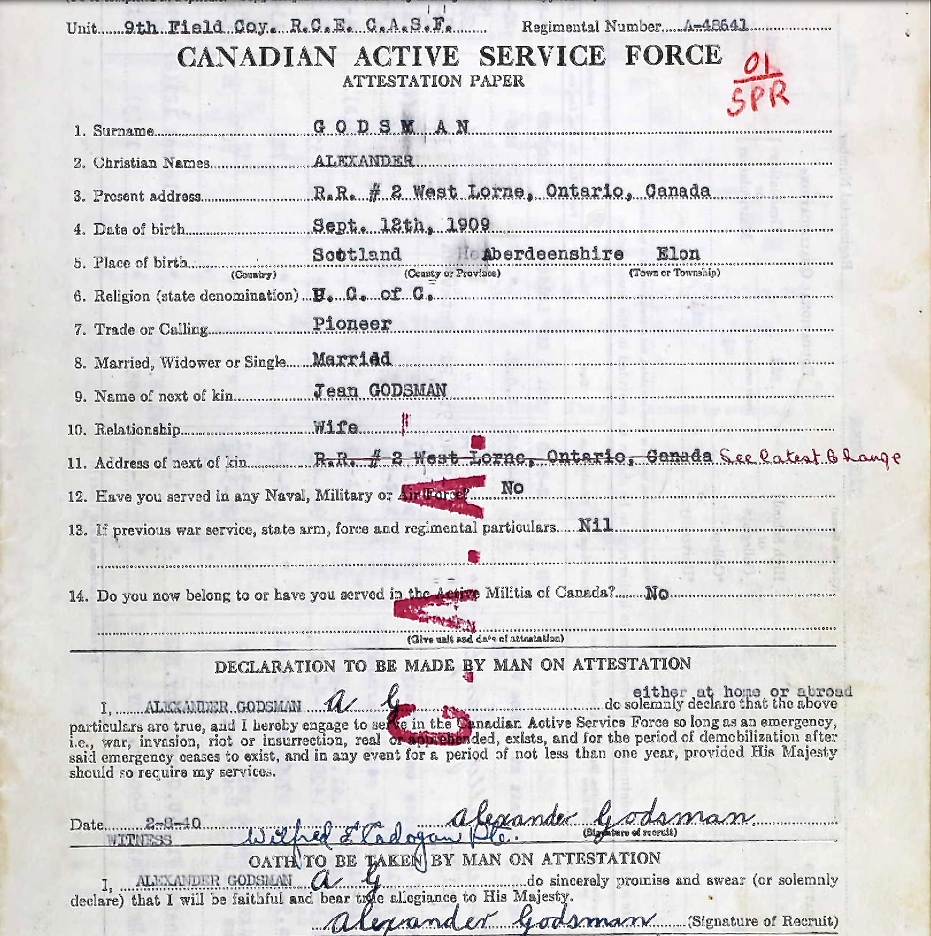 Unit 9th Field Coy. R.C.E. C.A.S.F. Regimental Number A-48641
CANADIAN ACTIVE SERVICE FORCE
ATTESTATION PAPER
01
SPR
1. Surname GODSMAN
2. Christian Names ALEXANDER
3. Present address R.R. # 2 West Lorne, Ontario, Canada
4. Date of birth Sept. 12th, 1909
5. Place of birth Scotland Aberdeenshire Elon
(Country) (County or Province) (Town or Township)
6. Religion (state denomination) U. C. of C.
7. Trade or Calling Pioneer
8. Married, Widower or Single Married
9. Name of next of kin Jean GODSMAN
10. Relationship Wife
11. Address of next of kin R.R. # 2 West Lorne, Ontario, Canada See latest Change
12. Have you served in any Naval, Military or Air Force? No
13. If previous war service, state arm, force and regimental particulars. Nil
14. Do you now belong to or have you served in the Active Militia of Canada? No
(Give unit and date of attestation)
DECLARATION TO BE MADE BY MAN ON ATTESTATION
either at home or abroad
I, ALEXANDER GODSMAN A G do solemnly declare that the above
particulars are true, and I hereby engage to serve in the Canadian Active Service Force so long as an emergency,
i.e., war, invasion, riot or insurrection, real or apprehended, exists, and for the period of demobilization after
said emergency ceases to exist, and in any event for a period of not less than one year, provided His Majesty
should so require my services.
C.A.A.
Alexander Godsman
Date 2-8-40 (Signature of recruit)
WITNESS Wilfred E Cadogan Pte.
OATH TO BE TAKEN BY MAN ON ATTESTATION
I, ALEXANDER GODSMAN A G do sincerely promise and swear (or solemnly
declare) that I will be faithful and bear true allegiance to His Majesty.
Alexander Godsman (Signature of Recruit)